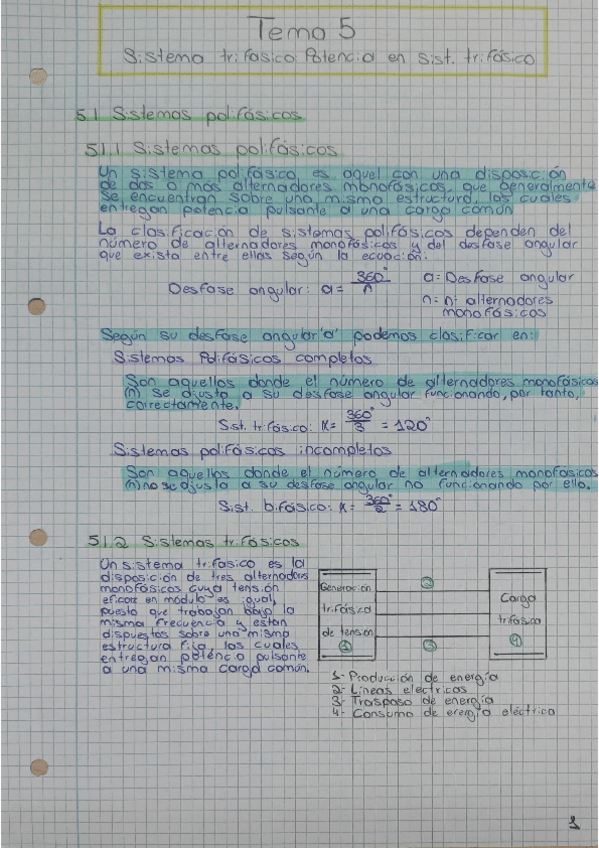 Tema 5
Sistema trifasico. Potencia en sist. trifásico
5.1 Sistemas polifásicos
5.1.1 Sistemas polifásicos
Un sistema polifásico es aquel con una disposición
de dos o más alternadores monofásicos, que generalmente
se encuentran sobre una misma estructura, los cuales
entregan potencia pulsante a una carga común
La clasificación de sistemas polifásicos dependen del
número de alternadores monofásicos y del desfase angular
que exista entre ellas según la ecuación:
Desfase angular: a = 360°/n
a = Desfase angular
n = nº alternadores
monofásicos
Según su desfase angular "a" podemos clasificar en:
Sistemas Polifásicos completos
Son aquellos donde el número de alternadores monofásicos
(n) se ajusta a su desfase angular funcionando, por tanto,
correctamente.
Sist. trifásico: α = 360°/3 = 120°
Sistemas polifásicos incompletos
Son aquellos donde el número de alternadores monofásicos
(n) no se ajusta a su desfase angular no funcionando por ello.
Sist. bifásico: α = 360°/2 = 180°
5.1.2 Sistemas trifásicos
Un sistema trifasico es la
disposición de tres alternadores
monofásicos cuya tensión
eficaz en módulo es igual,
puesto que trabajan bajo la
misma frecuencia y están
dispuestos sobre una misma
estructura fija, los cuales
entregan potencia pulsante
a una misma carga común.
Generación
trifásica
de tensión
1
2
3
Carga
trifásica
4
1- Producción de energía
2- Líneas eléctricas
3- Traspaso de energía
4- Consumo de energía eléctrica
1